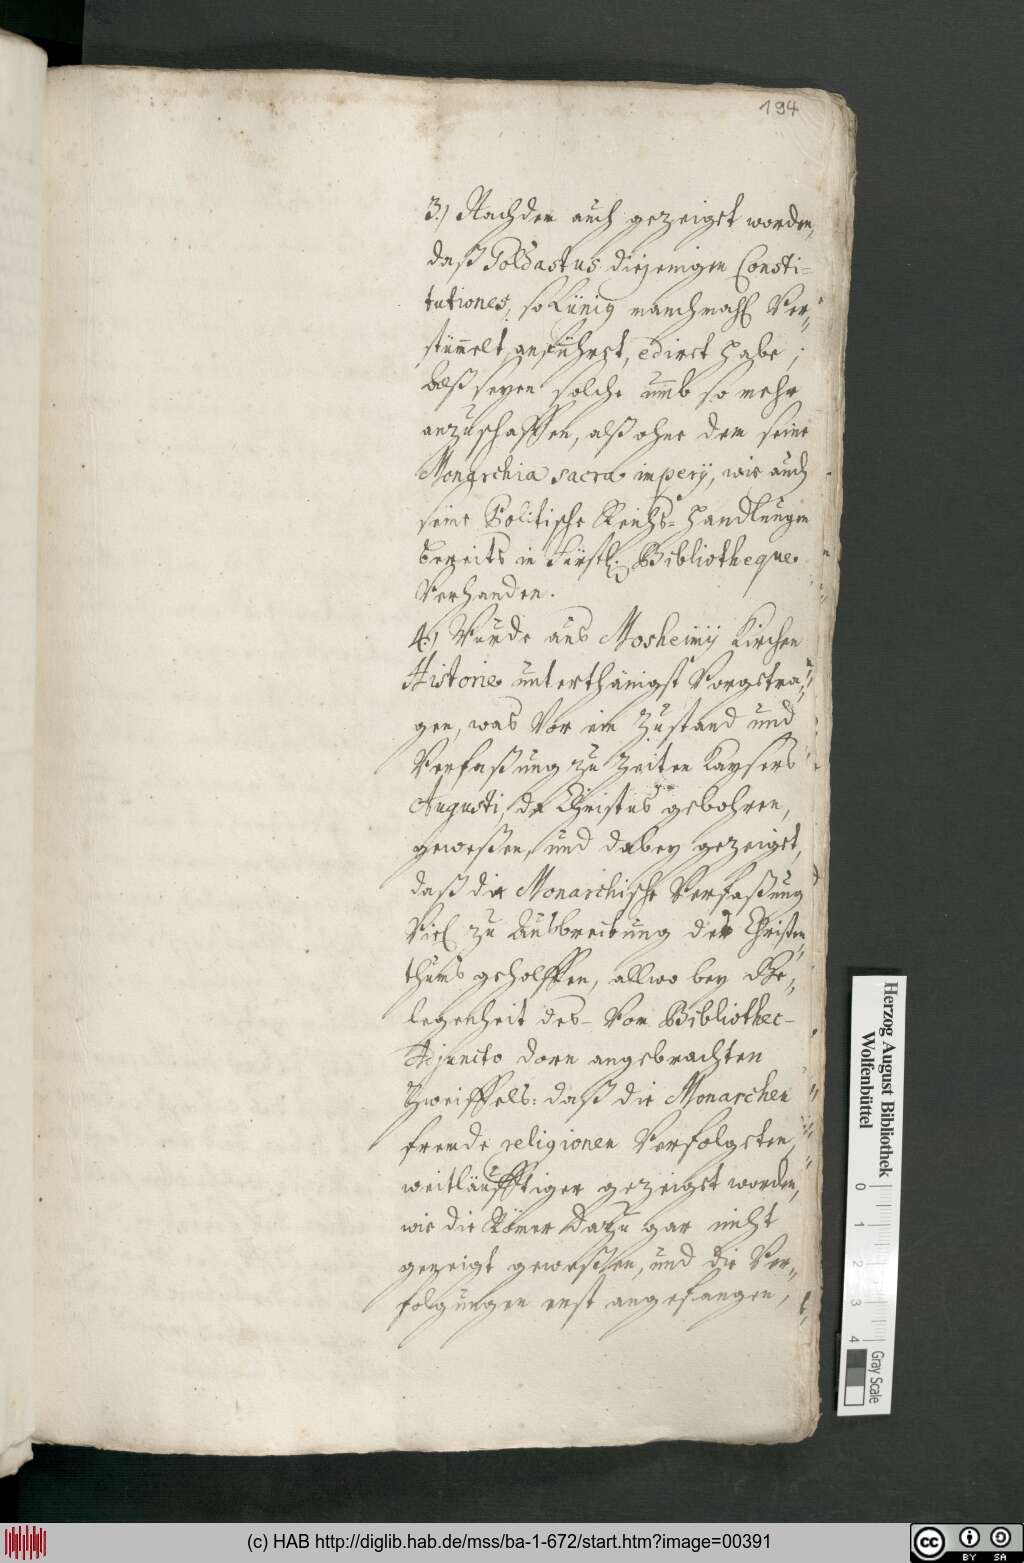 194
3.) Nachdem auch gezeiget worden,
daß Goldastus diejenigen Consti-
tutiones, so Lünig manchmahl Ver-
stümmelt anführet, ediret habe;
alß seyen solche umb so mehr
anzuschaffen, alß ohne dem seine
Monarchia sacra imperij, wie auch
seine Politische Reichs-Handlungen
bereits in Fürstl. Bibliotheque
Verhanden.
4.) Wurde aus Moshemij Kirchen
Historie unterthänigst Vorgetra-
gen, was Vor ein Zustand und
Verfaßung zu Zeiten Kaysers
Augusti, da Christus gebohren,
geweßen, und dabey gezeiget,
daß die Monarchische Verfaßung
Viel zu Ausbreitung des Christen
thumbs geholffen, allwo bey Ge-
legenheit des Vom Bibliothec-
Adjuncto dorn angebrachten
Zweiffels: daß die Monarchen
fremde religionen Verfolgeten,
weitläufftiger gezeiget worden,
wie die Römer dazu gar nicht
geneigt geweßen, und die Ver-
folgungen erst angefangen,
Herzog August Bibliothek
Wolfenbüttel
0 1 2 3 4
Gray Scale
(c) HAB http://diglib.hab.de/mss/ba-1-672/start.htm?image=00391
cc BY SA